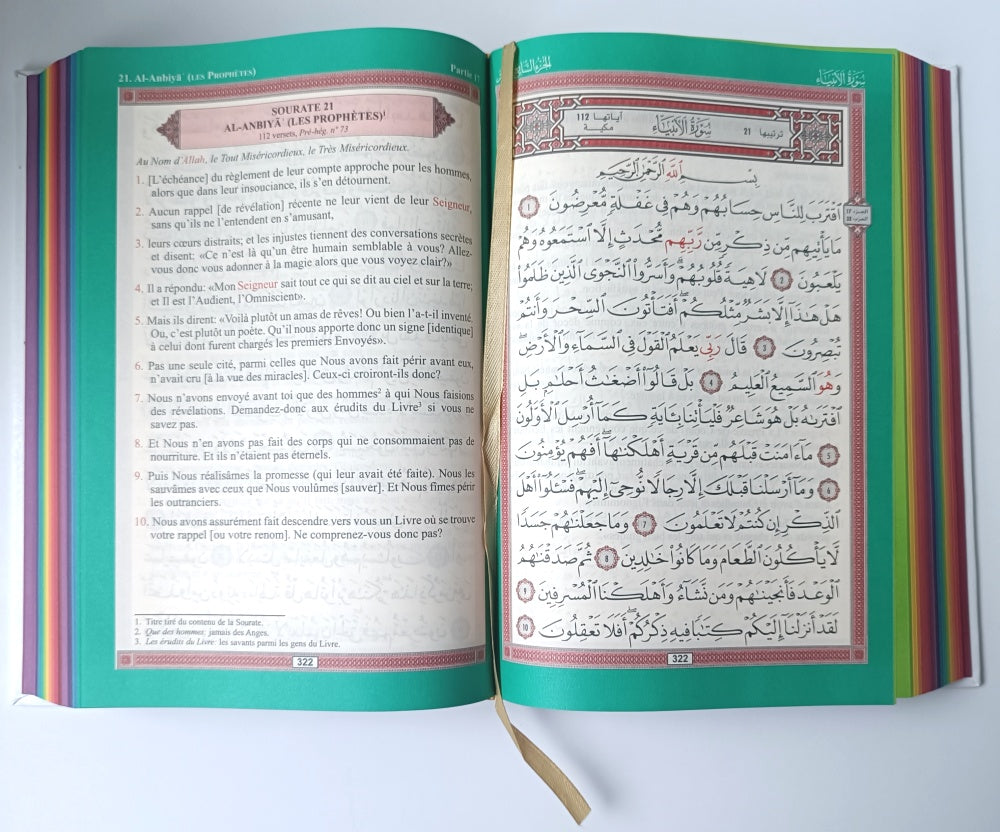 21. Al-Anbiyāʾ (LES PROPHÈTES)
Partie 17
SOURATE 21
AL-ANBIYĀʾ (LES PROPHÈTES)¹
112 versets, Pré-hég. n° 73
Au Nom d'Allah, le Tout Miséricordieux, le Très Miséricordieux.
1. [L'échéance] du règlement de leur compte approche pour les hommes,
alors que dans leur insouciance, ils s'en détournent.
2. Aucun rappel [de révélation] récente ne leur vient de leur Seigneur,
sans qu'ils ne l'entendent en s'amusant,
3. leurs cœurs distraits; et les injustes tiennent des conversations secrètes
et disent: «Ce n'est là qu'un être humain semblable à vous? Allez-
vous donc vous adonner à la magie alors que vous voyez clair?»
4. Il a répondu: «Mon Seigneur sait tout ce qui se dit au ciel et sur la terre;
et Il est l'Audient, l'Omniscient».
5. Mais ils dirent: «Voilà plutôt un amas de rêves! Ou bien l'a-t-il inventé.
Ou, c'est plutôt un poète. Qu'il nous apporte donc un signe [identique]
à celui dont furent chargés les premiers Envoyés».
6. Pas une seule cité, parmi celles que Nous avons fait périr avant eux,
n'avait cru [à la vue des miracles]. Ceux-ci croiront-ils donc?
7. Nous n'avons envoyé avant toi que des hommes² à qui Nous faisions
des révélations. Demandez-donc aux érudits du Livre³ si vous ne
savez pas.
8. Et Nous n'en avons pas fait des corps qui ne consommaient pas de
nourriture. Et ils n'étaient pas éternels.
9. Puis Nous réalisâmes la promesse (qui leur avait été faite). Nous les
sauvâmes avec ceux que Nous voulûmes [sauver]. Et Nous fîmes périr
les outranciers.
10. Nous avons assurément fait descendre vers vous un Livre où se trouve
votre rappel [ou votre renom]. Ne comprenez-vous donc pas?
1. Titre tiré du contenu de la Sourate.
2. Que des hommes: jamais des Anges.
3. Les érudits du Livre: les savants parmi les gens du Livre.
322
سُورَةُ الأَنبِيَاء
ترتيبها 21 سُورَةُ الأَنبِيَاء آياتها 112 مكية
بِسْمِ اللَّهِ الرَّحْمَٰنِ الرَّحِيمِ
اقْتَرَبَ لِلنَّاسِ حِسَابُهُمْ وَهُمْ فِي غَفْلَةٍ مُّعْرِضُونَ ١
مَا يَأْتِيهِم مِّن ذِكْرٍ مِّن رَّبِّهِم مُّحْدَثٍ إِلَّا اسْتَمَعُوهُ وَهُمْ
يَلْعَبُونَ ٢ لَاهِيَةً قُلُوبُهُمْ ۗ وَأَسَرُّوا النَّجْوَى الَّذِينَ ظَلَمُوا
هَلْ هَٰذَا إِلَّا بَشَرٌ مِّثْلُكُمْ ۖ أَفَتَأْتُونَ السِّحْرَ وَأَنتُمْ
تُبْصِرُونَ ٣ قَالَ رَبِّي يَعْلَمُ الْقَوْلَ فِي السَّمَاءِ وَالْأَرْضِ ۖ
وَهُوَ السَّمِيعُ الْعَلِيمُ ٤ بَلْ قَالُوا أَضْغَاثُ أَحْلَامٍ بَلِ
افْتَرَاهُ بَلْ هُوَ شَاعِرٌ فَلْيَأْتِنَا بِآيَةٍ كَمَا أُرْسِلَ الْأَوَّلُونَ
٥ مَا آمَنَتْ قَبْلَهُم مِّن قَرْيَةٍ أَهْلَكْنَاهَا ۖ أَفَهُمْ يُؤْمِنُونَ
٦ وَمَا أَرْسَلْنَا قَبْلَكَ إِلَّا رِجَالًا نُّوحِي إِلَيْهِمْ ۖ فَسْـَٔلُوا أَهْلَ
الذِّكْرِ إِن كُنتُمْ لَا تَعْلَمُونَ ٧ وَمَا جَعَلْنَاهُمْ جَسَدًا
لَّا يَأْكُلُونَ الطَّعَامَ وَمَا كَانُوا خَالِدِينَ ٨ ثُمَّ صَدَقْنَاهُمُ
الْوَعْدَ فَأَنجَيْنَاهُمْ وَمَن نَّشَاءُ وَأَهْلَكْنَا الْمُسْرِفِينَ ٩
لَقَدْ أَنزَلْنَا إِلَيْكُمْ كِتَابًا فِيهِ ذِكْرُكُمْ ۖ أَفَلَا تَعْقِلُونَ ١٠
الجزء 17
322